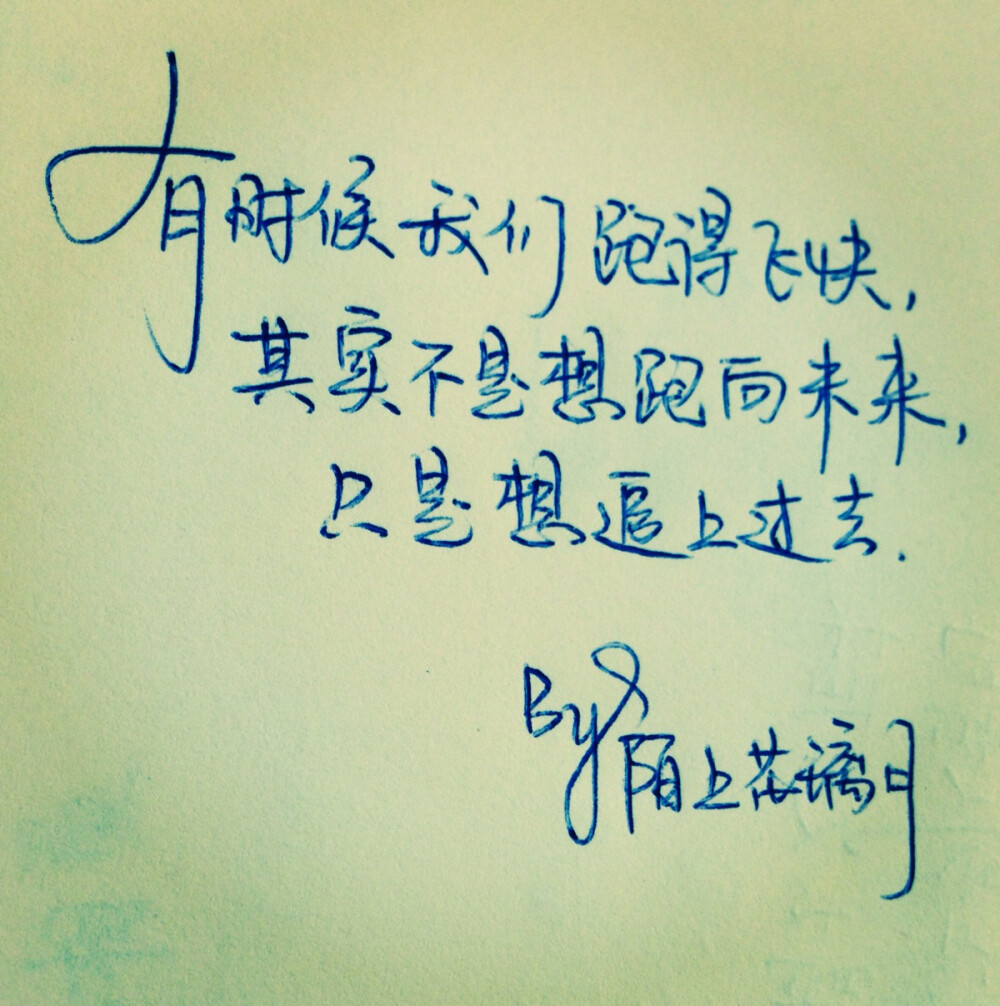 有时候我们跑得飞快,
其实不是想跑向未来,
只是想追上过去.
By 陌上芯璃月